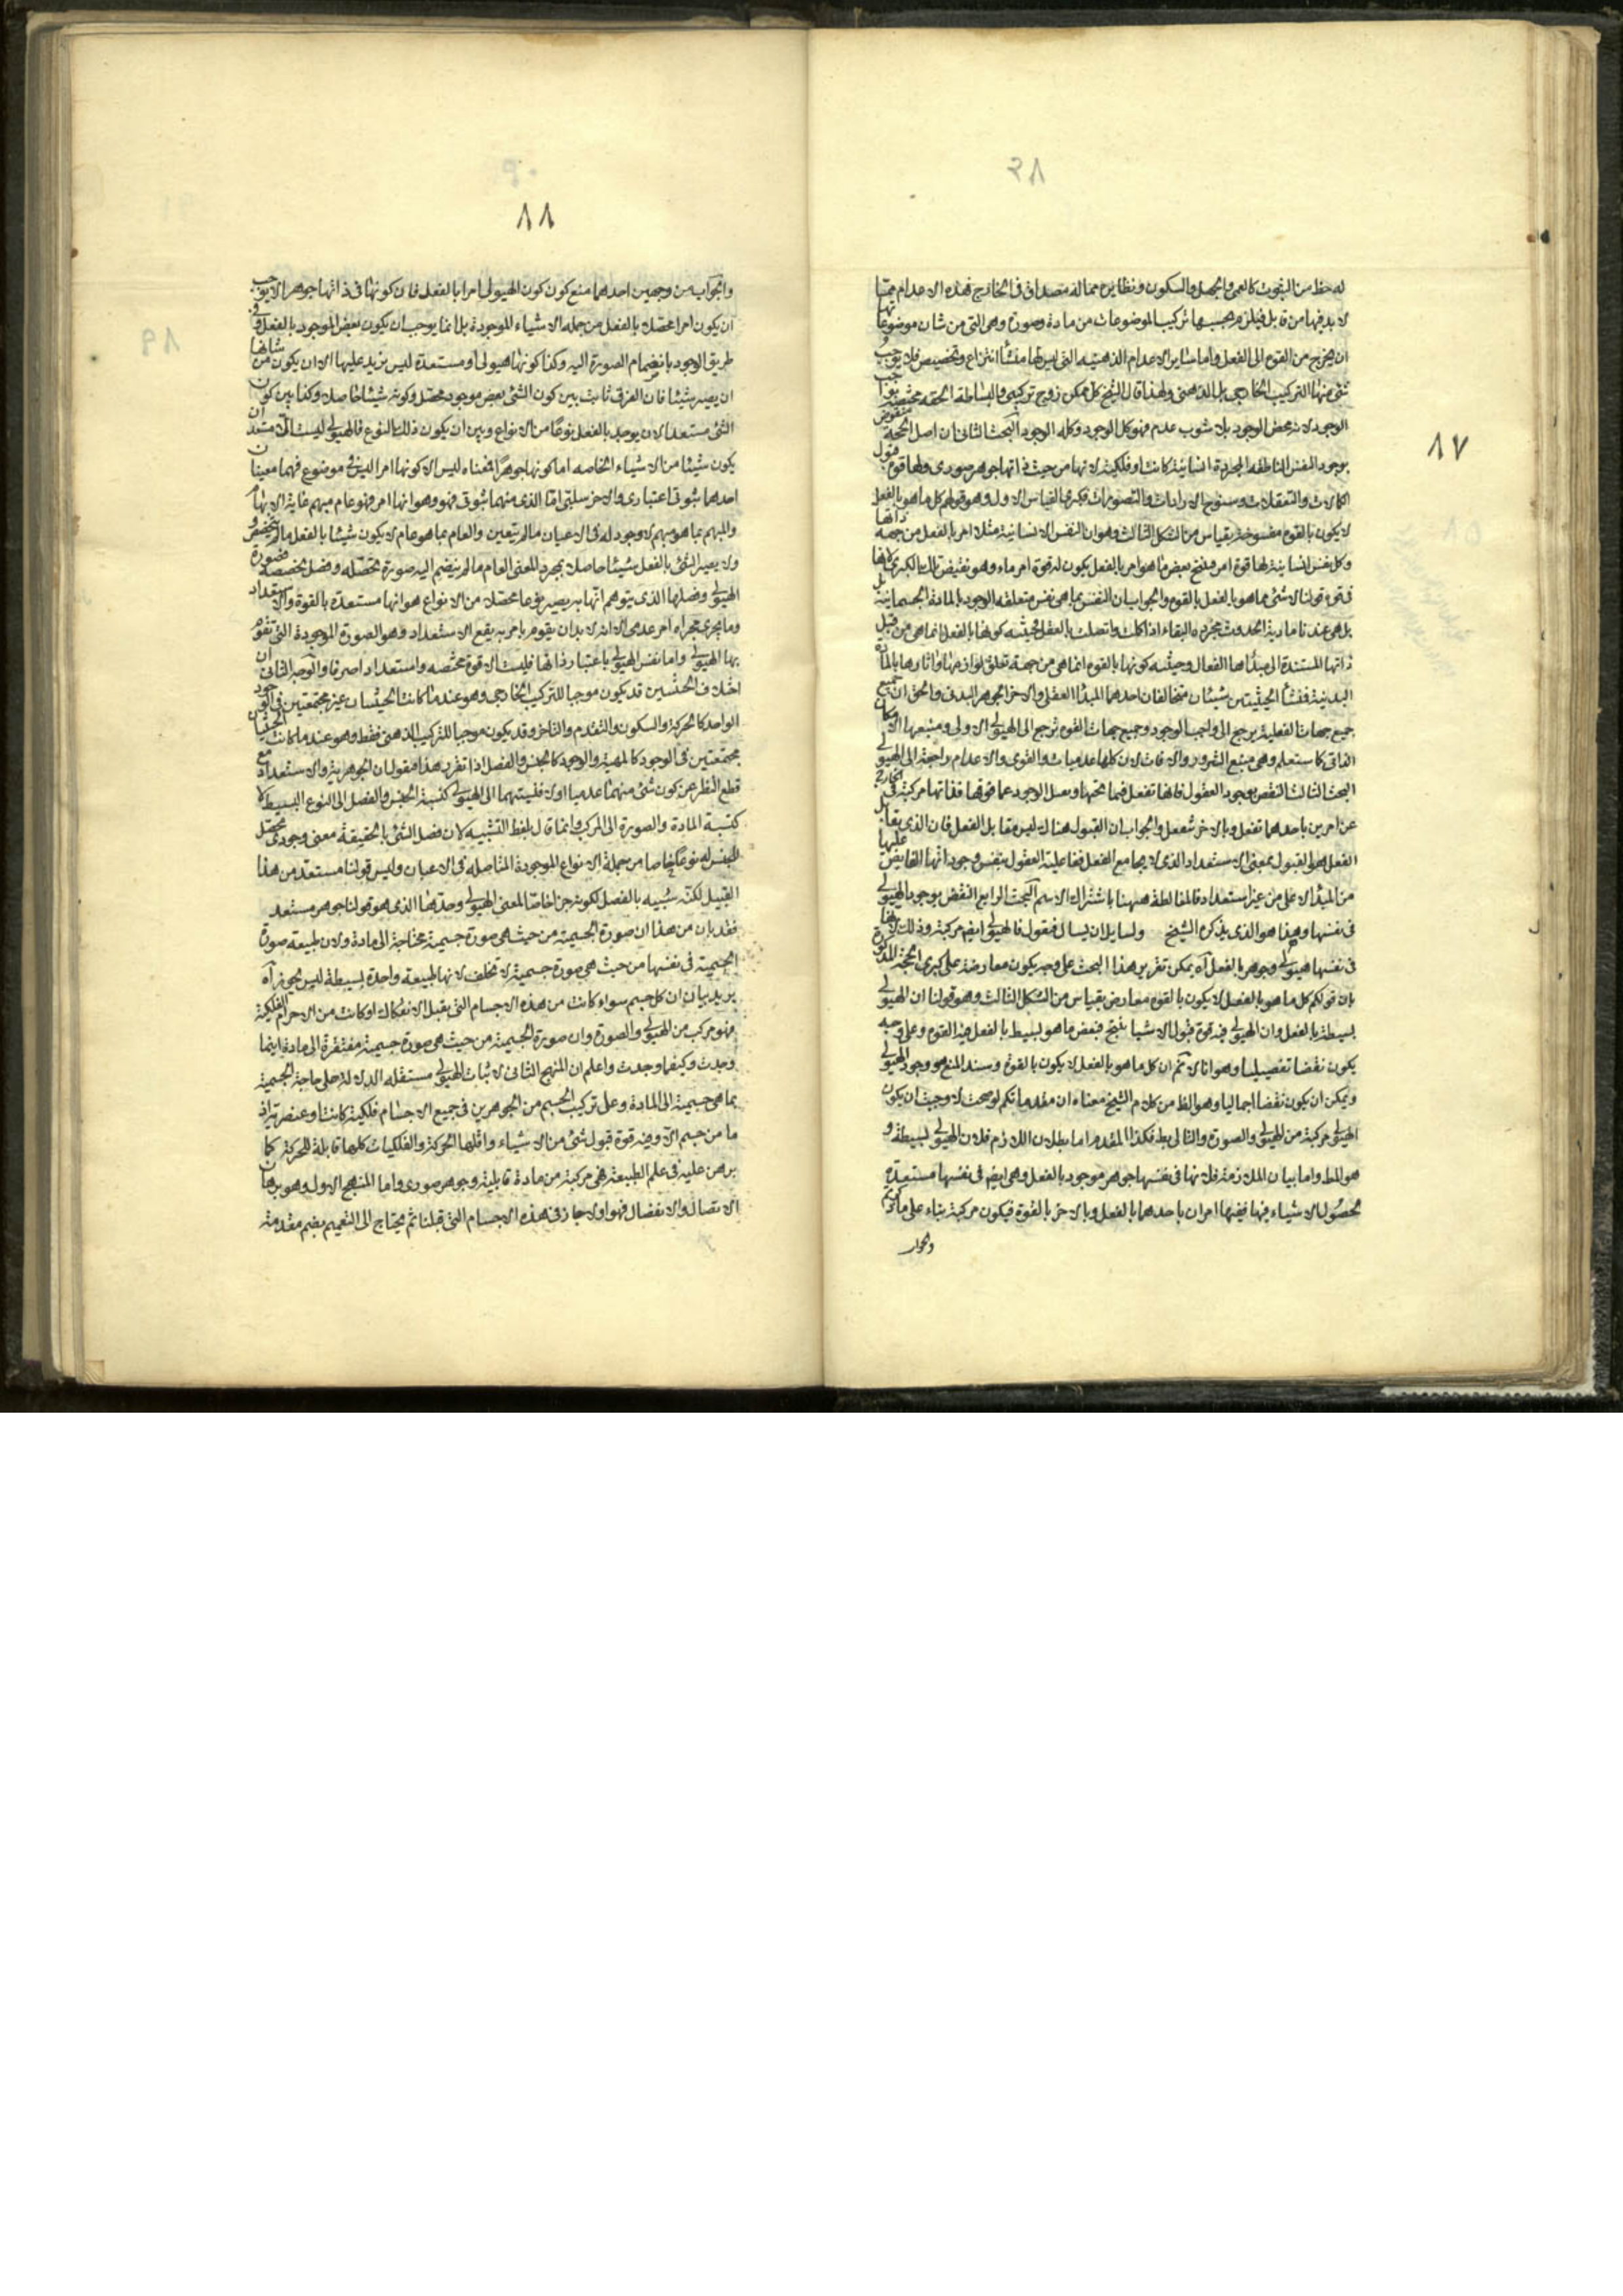 له حظ من الثبوت كالعمى والجهل والسكون ونظايرها مما له مصداق فى الخارج فهذه الاعدام مما
لا بد فيها من قابل فيلزم بحسبها تركيب الموضوعات من مادة وصورة وهى التى من شان موضوعاتها
ان يخرج من القوة الى الفعل واما ساير الاعدام الذهنية التى ليس لها منشأ انتزاع وتخصيص فلا يوجب
شئ منها التركيب الخارجى بل الذهنى ولهذا قال الشيخ كل ممكن زوج تركيبى والبساطة الحقة مختصة بواجب
الوجود لانه محض الوجود بلا شوب عدم فهو كل الوجود وكله الوجود البحث الثانى ان اصل الحجة منقوض
بوجود النفس الناطقة المجردة انسانية كانت او فلكية لانها من حيث ذاتها جوهر صورى ولها قوة قبول
الكمالات والتعقلات وسنوح الارادات والتصورات فكبرى القياس الاول وهو قولهم كل ما هو بالفعل
لا يكون بالقوة مفسوخة بقياس من الشكل الثالث وهو ان النفس الانسانية مثلا امر بالفعل من جهة ذاتها
وكل نفس انسانية لها قوة امر ما ينتج بعض ما هو امر بالفعل يكون له قوة امر ماء وهو نقيض تلك الكبرى لانها
فى قوة قولنا لا شئ مما هو بالفعل بالقوة والجواب ان النفس بما هى نفس متعلقة الوجود بالمادة الجسمانية بل
هى عندنا مادية الحدوث مجردة البقاء اذا كملت واتصلت بالعقل فحيثية كونها بالفعل انما هى من قبل
ذاتها المستندة الى مبدأها الفعال وحيثية كونها بالقوة انما هى من جهة تعلق لوازمها واثارها بالمادة
البدنية فمنشأ الحيثيتين شيئان متخالفان احدهما المبدأ العقلى والاخر الجوهر البدنى والحق ان جميع
جهات الفعلية يرجع الى واجب الوجود وجميع جهات القوة ترجع الى الهيولى الاولى ومنبعها الامكان
الذاتى كما ستعلم وهى منبع الشرور والافات لان كلها عدميات والقوى والاعدام راجعة الى الهيولى
البحث الثالث النقض بوجود العقول فانها تفعل فيما تحتها وتقبل الوجود عما فوقها فذاتها مركبة فى الخارج
عن امرين باحدهما تفعل وبالاخر تنفعل والجواب ان القبول هناك ليس مقابل الفعل فان الذى يقابل
الفعل هو القبول بمعنى الاستعداد الذى لا يجامع الفعل ففاعلية العقول بنفس وجوداتها الفايضة عليها
من المبدأ الاعلى من غير استعداد فالمغالطة ههنا باشتراك الاسم البحث الرابع النقض بوجود الهيولى
فى نفسها وهذا هو الذى يذكره الشيخ ولسايل ان يسال فيقول فالهيولى ايضا مركبة وذلك لانها
فى نفسها هيولى وجوهر بالفعل آه يمكن تقرير هذا البحث على وجه يكون معارضة على كبرى الحجة المذكورة
بان قولكم كل ما هو بالفعل لا يكون بالقوة معارض بقياس من الشكل الثالث وهو قولنا ان الهيولى
بسيطة بالفعل وان الهيولى فيه قوة قبول الاشياء ينتج فبعض ما هو بسيط بالفعل فيه القوة وعلى وجه
يكون نقضا تفصيليا وهو انا لا نم ان كل ما هو بالفعل لا يكون بالقوة وسند المنع هو وجود الهيولى
ويمكن ان يكون نقضا اجماليا وهو الظ من كلام الشيخ معناه ان مقدماتكم لو صحت لاوجبت ان يكون
الهيولى مركبة من الهيولى والصورة والتالى بط فكذا المقدم اما بطلان اللازم فلان الهيولى بسيطة و
هو المط واما بيان الملازمة فلانها فى نفسها جوهر موجود بالفعل وهى ايضا فى نفسها مستعدة
لحصول الاشياء فيها ففيها امران باحدهما بالفعل وبالاخر بالقوة فيكون مركبة بناء على ما ذكرتم
والجواب
١٧
١٨
والجواب من وجهين احدهما منع كون كون الهيولى امرا بالفعل فان كونها فى ذاتها جوهرا لا يوجب
ان يكون امرا محصلا بالفعل من جملة الاشياء الموجودة بل انما يوجب ان يكون بعض الموجود بالفعل وفى
طريق الوجود بانضمام الصورة اليه وكذا كونها هيولى او مستعدة ليس يزيد عليها الا ان يكون من شانها
ان يصير شيئا فان الفرق ثابت بين كون الشئ بعض موجود محصل وكونه شيئا حاصلا وكذا بين كون
الشئ مستعدا لان يوجد بالفعل نوعا من الانواع وبين ان يكون ذلك النوع فالهيولى ليست الا مستعدة ان
يكون شيئا من الاشياء الخاصة اما كونها جوهرا فمعناه ليس الا كونها امرا ليس فى موضوع فههنا معنيان
احدهما ثبوتى اعتبارى والاخر سلبى اما الذى منهما ثبوتى فهو وهو انها امر فهو عام مبهم غاية الابهام
والمبهم بما هو مبهم لا وجود له فى الاعيان ما لم يتعين والعام بما هو عام لا يكون شيئا بالفعل ما لم يتخصص و
ولا يصير الشئ بالفعل شيئا حاصلا بمجرد المعنى العام ما لم ينضم اليه صورة تحصله وفصل يخصصه فصورة
الهيولى وفصلها الذى يتوهم انها به يصير نوعا محصلا من الانواع هو انها مستعدة بالقوة والاستعداد
وما يجرى مجراه امر عدمى الا انه لا بد ان يقوم بامر به يقع الاستعداد وهو الصورة الموجودة التى تقوم
بها الهيولى واما نفس الهيولى باعتبار ذاتها فليست الا قوة محضة واستعدادا صرفا والوجه الثانى ان
اختلاف الحيثيتين قد يكون موجبا للتركيب الخارجى وهو عندما كانت الحيثيتان غير مجتمعتين فى الوجود
الواحد كالحركة والسكون والتقدم والتاخر وقد يكون موجبا للتركيب الذهنى فقط وهو عندما كانت الحيثيتان
مجتمعتين فى الوجود كالمهية والوجود كالجنس والفصل اذا تقرر هذا فنقول ان الجوهرية والاستعداد مع
قطع النظر عن كون شئ منهما عدميا اولا فنسبتهما الى الهيولى كنسبة الجنس والفصل الى النوع البسيط لا
كنسبة المادة والصورة الى المركب وانما قال بلفظ التشبيه لان فصل الشئ بالحقيقة معنى وجودى محصل
للجنس له نوعا خاصا من جملة الانواع الموجودة المتاصلة فى الاعيان وليس قولنا مستعد من هذا
القبيل لكنه شبيه بالفصل لكونه جزءا خاصا لمعنى الهيولى وحدها الذى هو قولنا جوهر مستعد
فقد بان من هذا ان صورة الجسمية من حيث هى صورة جسمية محتاجة الى مادة ولان طبيعة صورة
الجسمية فى نفسها من حيث هى صورة جسمية لا تختلف لانها طبيعة واحدة بسيطة ليس يجوز آه
يريد بيان ان كل جسم سواء كانت من هذه الاجسام التى يقبل الانفكاك او كانت من الاجرام الفلكية
فهو مركب من الهيولى والصورة وان صورة الجسمية من حيث هى صورة جسمية مفتقرة الى مادة اينما
وجدت وكيفما وجدت واعلم ان المنهج الثانى لاثبات الهيولى مستقلة الدلالة على حاجة الجسمية
بما هى جسمية الى المادة وعلى تركيب الجسم من الجوهرين فى جميع الاجسام فلكية كانت او عنصرية اذ
ما من جسم الا وفيه قوة قبول شئ من الاشياء واقلها الحركة والفلكيات كلها قابلة للحركة كما
برهن عليه فى علم الطبيعة فهى مركبة من مادة قابلية وجوهر صورى واما المنهج الاول وهو برهان
الاتصال والانفصال فهو اولا جار فى هذه الاجسام التى قبلنا ثم يحتاج الى التعميم بضم مقدمة